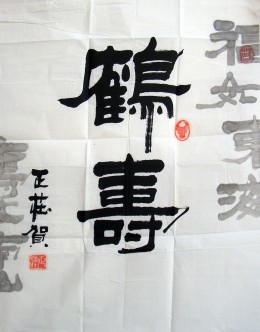 福如東海
鶴壽
正 賀
壽比南山